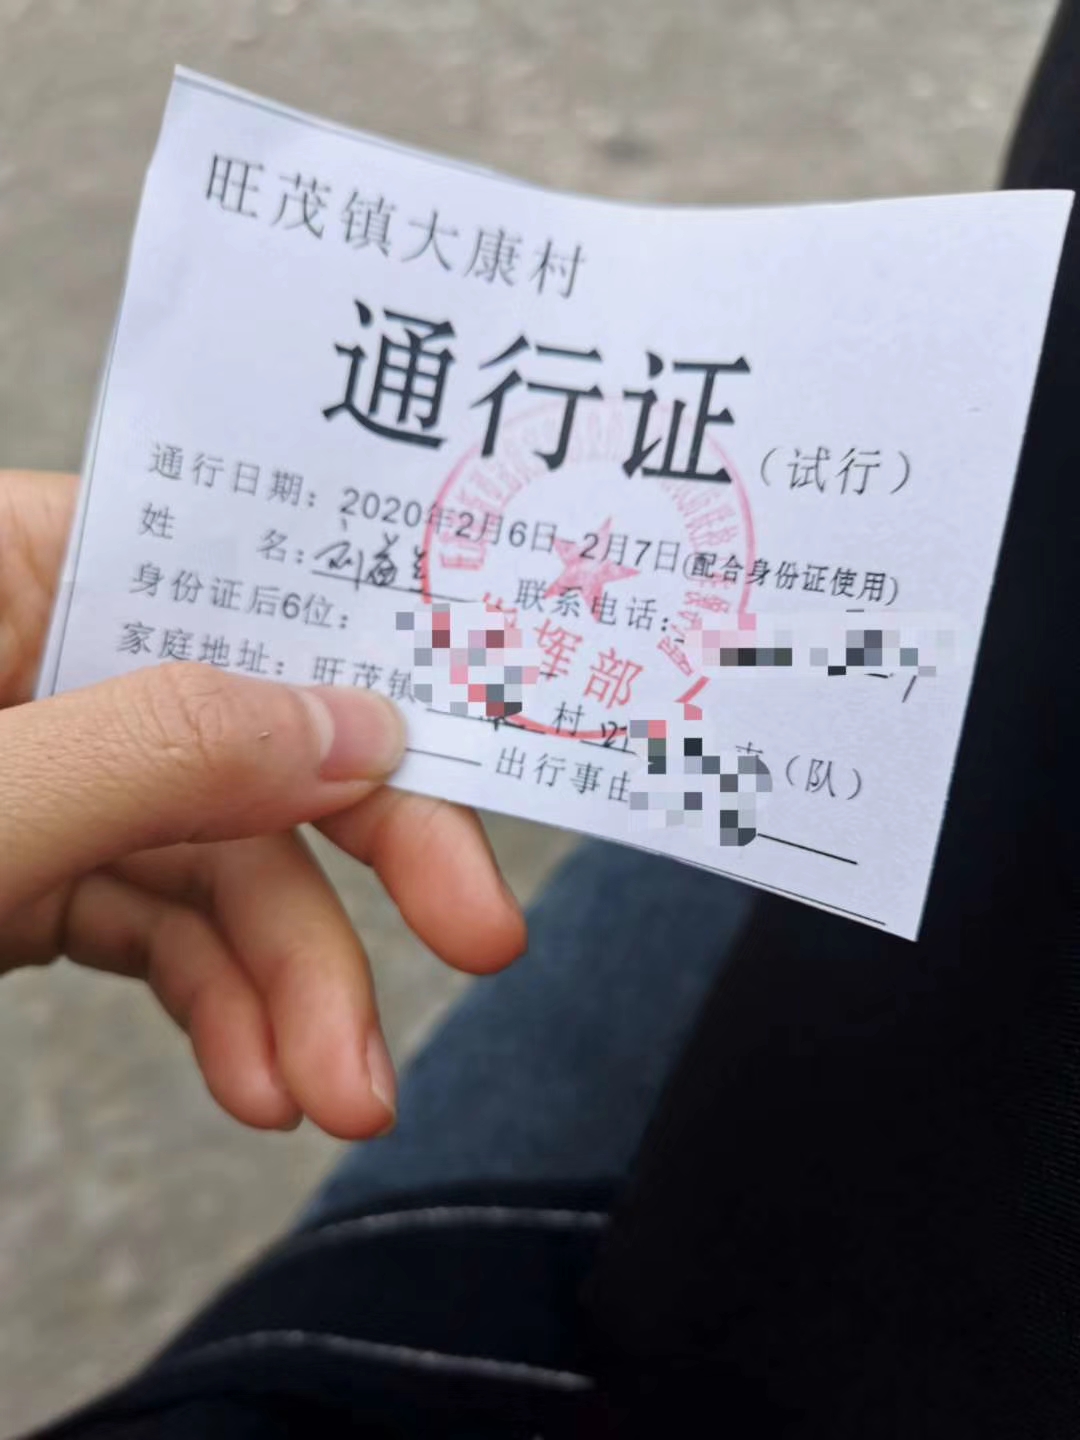 旺茂镇大康村
通行证（试行）
通行日期：2020年2月6日-2月7日(配合身份证使用)
姓 名： 联系电话：
身份证后6位：
家庭地址：旺茂镇 村 （队）
出行事由
挥部